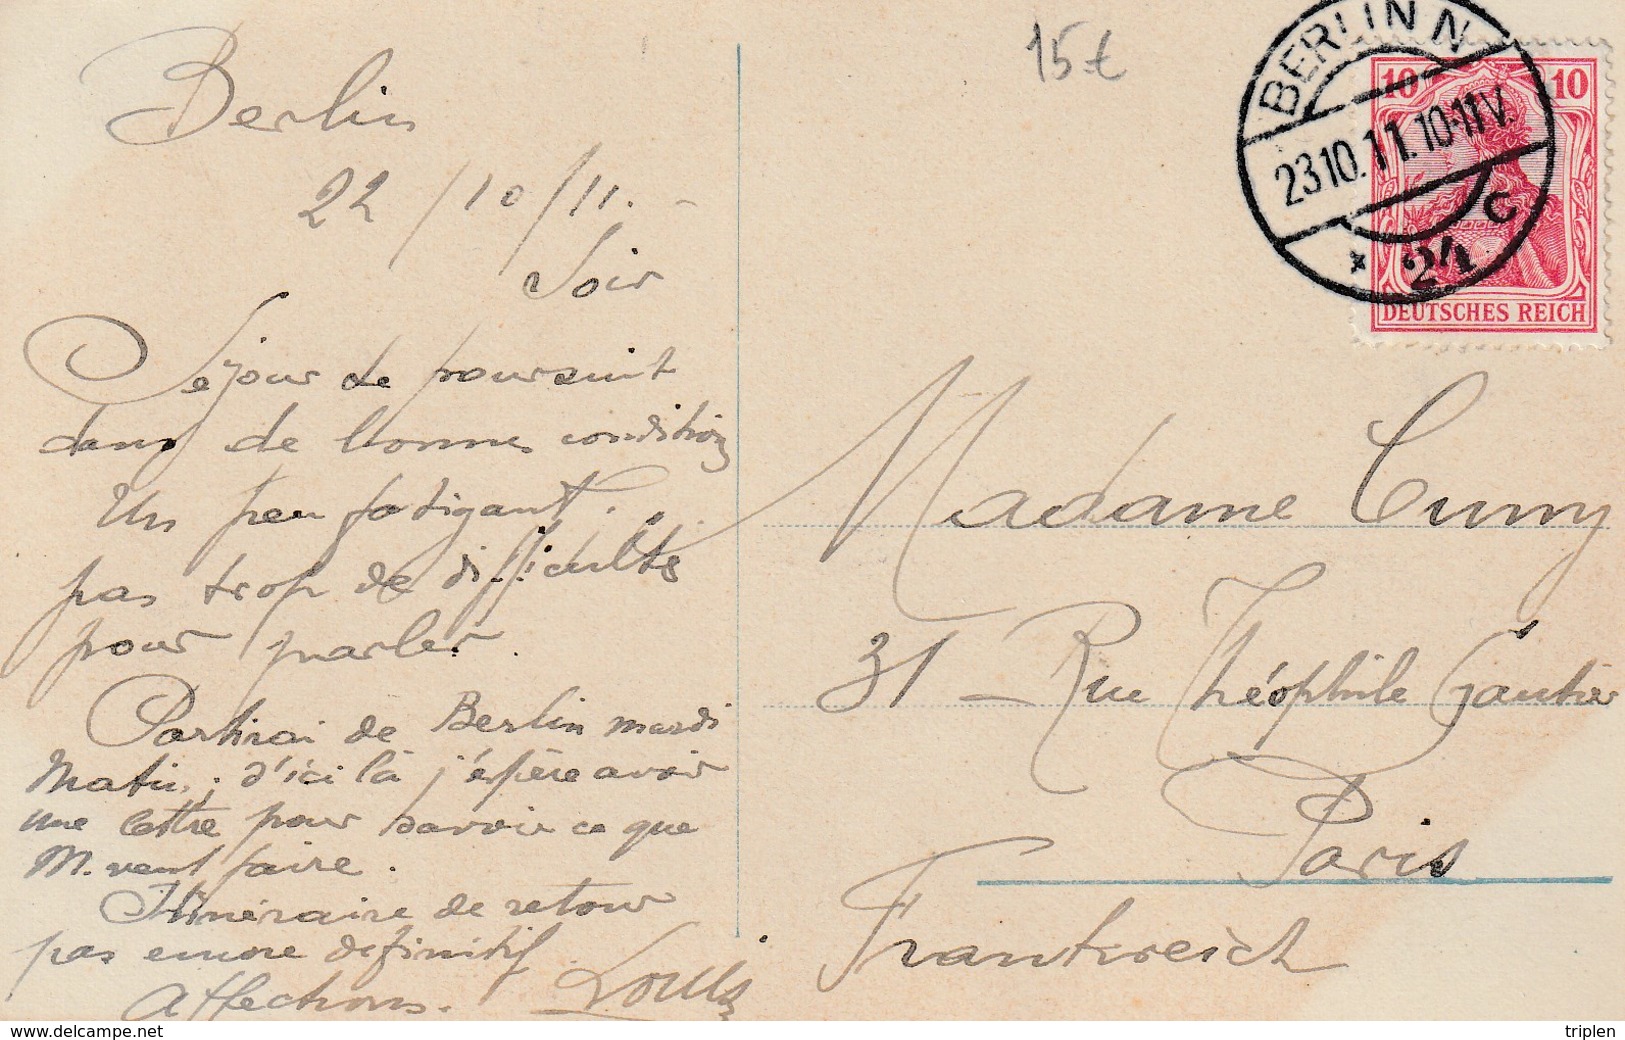 Berlin
22/10/11. -
Soir
Séjour se poursuit
dans de bonnes conditions
Un peu fatigant.
pas trop de difficultés
pour parler.
Partirai de Berlin mardi
matin; d'ici là j'espère avoir
une lettre pour savoir ce que
M. veut faire.
Itinéraire de retour
pas encore définitif.
Affections. Louis
15€
BERLIN N
23.10.11.10-11V.
* 24 C
10 10
DEUTSCHES REICH
Madame Cuny
31 - Rue Théophile Gautier
Paris
Frankreich
www.delcampe.net
triplen